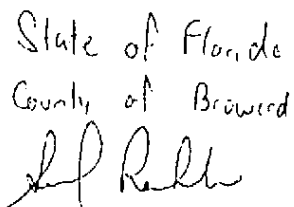 State of Florida
County of Broward